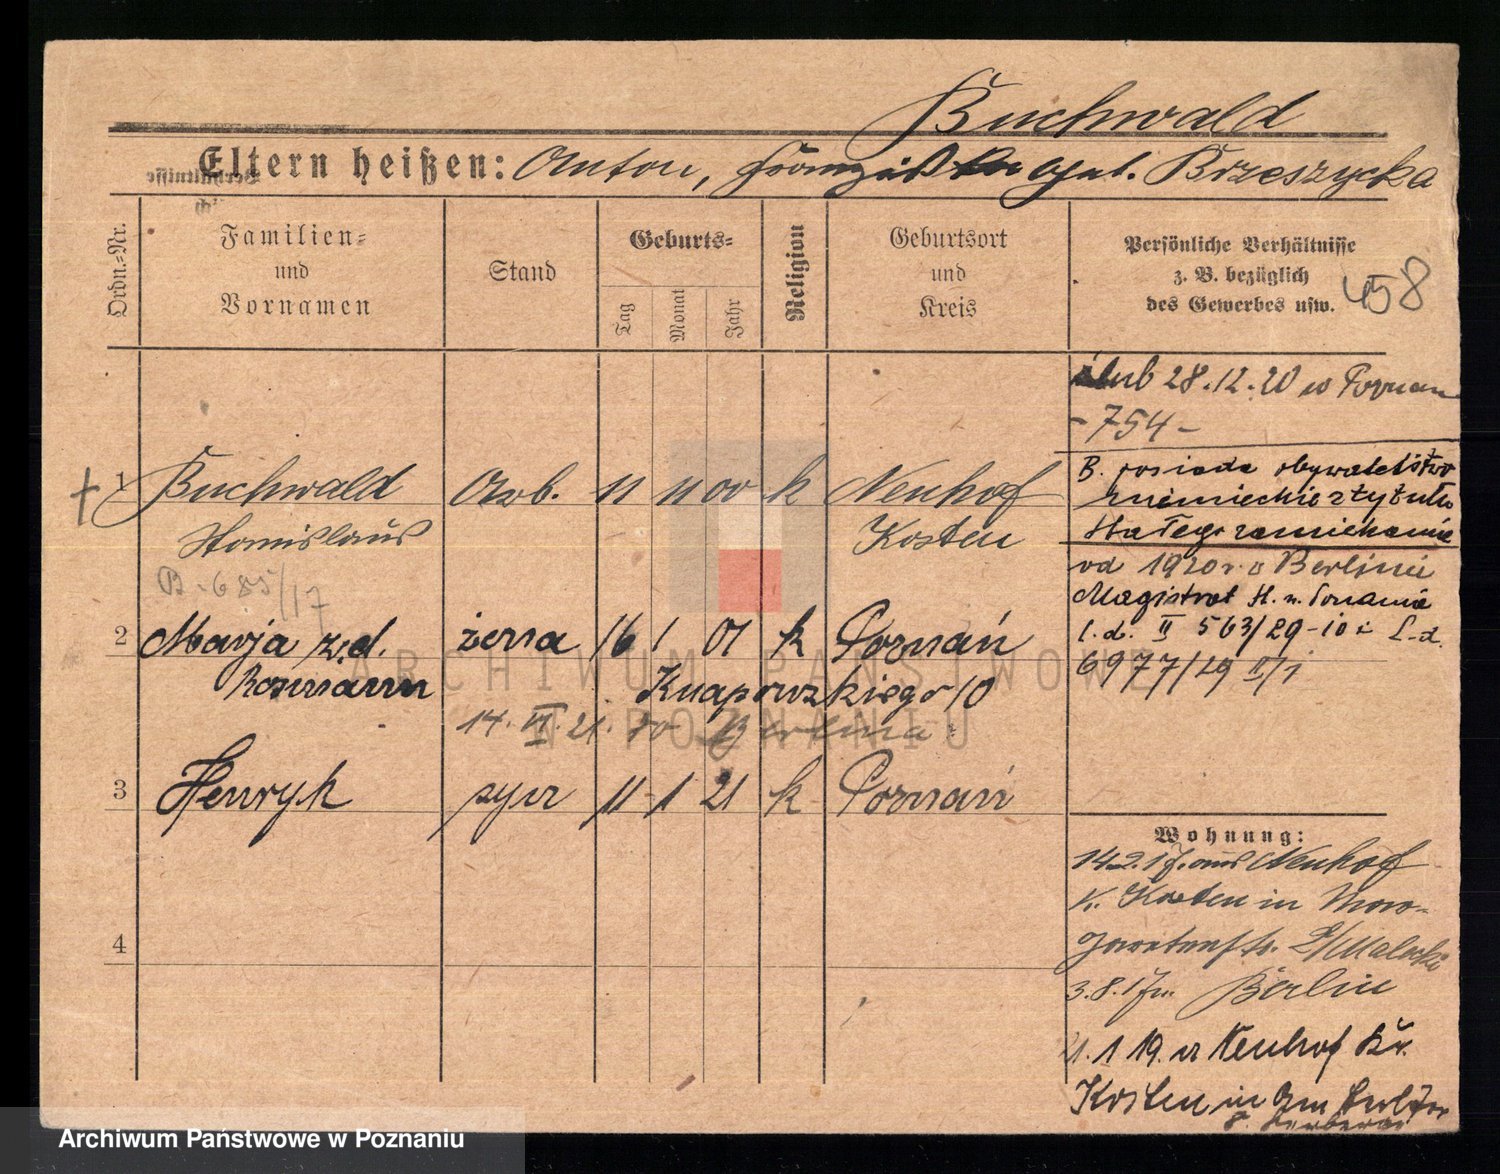 Buchwald
Eltern heißen: Anton, geb. Brzeszycka
Ordn.-Nr.
Familien-
und
Vornamen
Stand
Geburts-
Tag
Monat
Jahr
Religion
Geburtsort
und
Kreis
Persönliche Verhältnisse
z. B. bezüglich
des Gewerbes usw.
458
ślub 28.12.20 w Poznan
- 754 -
1 Buchwald Arb. 11 11 00 k Neuhof
Stanislaus Kosten
B. 685/17
B. posiada obywatelstwo
niemieckie z tytułu
stałego zamieszkania
od 1920 r. w Berlinie
Magistrat St. m. Poznania
l.d. II 563/29-10 i L.d.
6977/29 II/i
2 Marja żona 16 1 01 k Poznań
Rosmann Knapowskiego 10
14. VI. 21. do Berlina
3 Henryk syn 11 1 21 k Poznań
4
Wohnung:
14.2.17. aus Neuhof
K. Kosten in
Malecki
3.8.17. Berlin
11.1 19. v Neuhof Kr.
Kosten in
ARCHIWUM PAŃSTWOWE
W POZNANIU
Archiwum Państwowe w Poznaniu